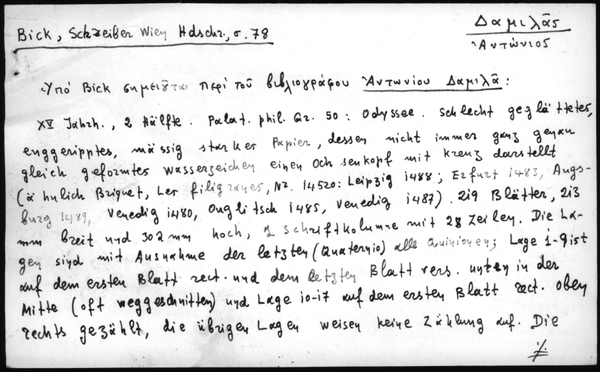 Bick, Schreiber Wien Hdschr., σ. 78
Δαμιλᾶς
Ἀντώνιος
Ὑπό Bick σημειοῦται περί τοῦ βιβλιογράφου Ἀντωνίου Δαμιλᾶ:
XV Jahrh., 2 Hälfte. Palat. phil. Gr. 50: Odyssee. Schlecht geglättetes,
enggeripptes, mässig starkes Papier, dessen nicht immer ganz genau
gleich geformtes Wasserzeichen einen Ochsenkopf mit Kreuz darstellt
(ähnlich Briquet, Les filigranes, Nr. 14520: Leipzig 1488; Erfurt 1483, Augs-
burg 1489, Venedig 1480, Auglitsch 1485, Venedig 1487). 219 Blätter, 213
mm breit und 302 mm hoch, 1 Schriftkolumne mit 28 Zeilen. Die La-
gen sind mit Ausnahme der letzten (Quaternio) alle Quinionen; Lage 1-9 ist
auf dem ersten Blatt rect. und dem letzten Blatt vers. unten in der
Mitte (oft weggeschnitten) und Lage 10-17 auf dem ersten Blatt rect. oben
rechts gezählt, die übrigen Lagen weisen keine Zählung auf. Die
./.